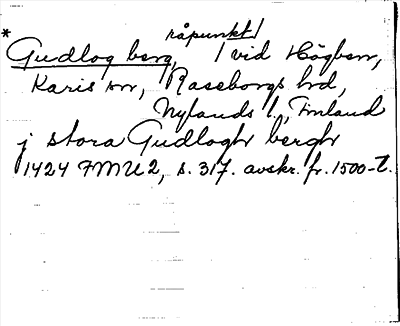 råpunkt/
* Gudlog berg, / vid Högben,
Karis sn, Raseborgs hd,
Nylands l., Finland
j stora Gudlogh bergh
1424 FMU 2, s. 317. avskr. fr. 1500-t.